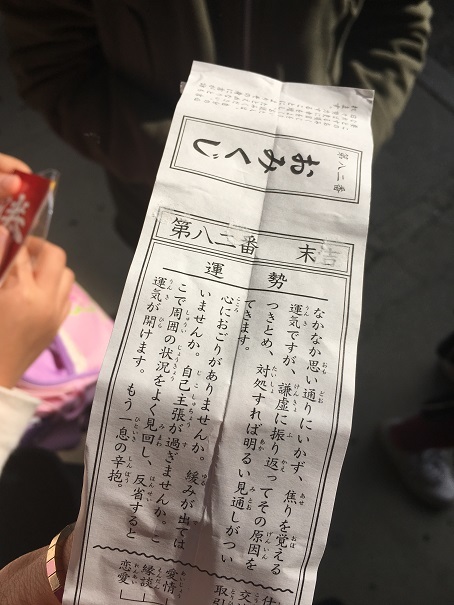 第八二番
おみくじ
第八二番 末吉
運勢
なかなか思い通りにいかず、焦りを覚える
運気ですが、謙虚に振り返ってその原因を
つきとめ、対処すれば明るい見通しがつい
てきます。
心におごりがありませんか。緩みが出ては
いませんか。自己主張が過ぎませんか。こ
こで周囲の状況をよく見回し、反省すると
運気が開けます。もう一息の辛抱。
取引
愛情
縁談
恋愛